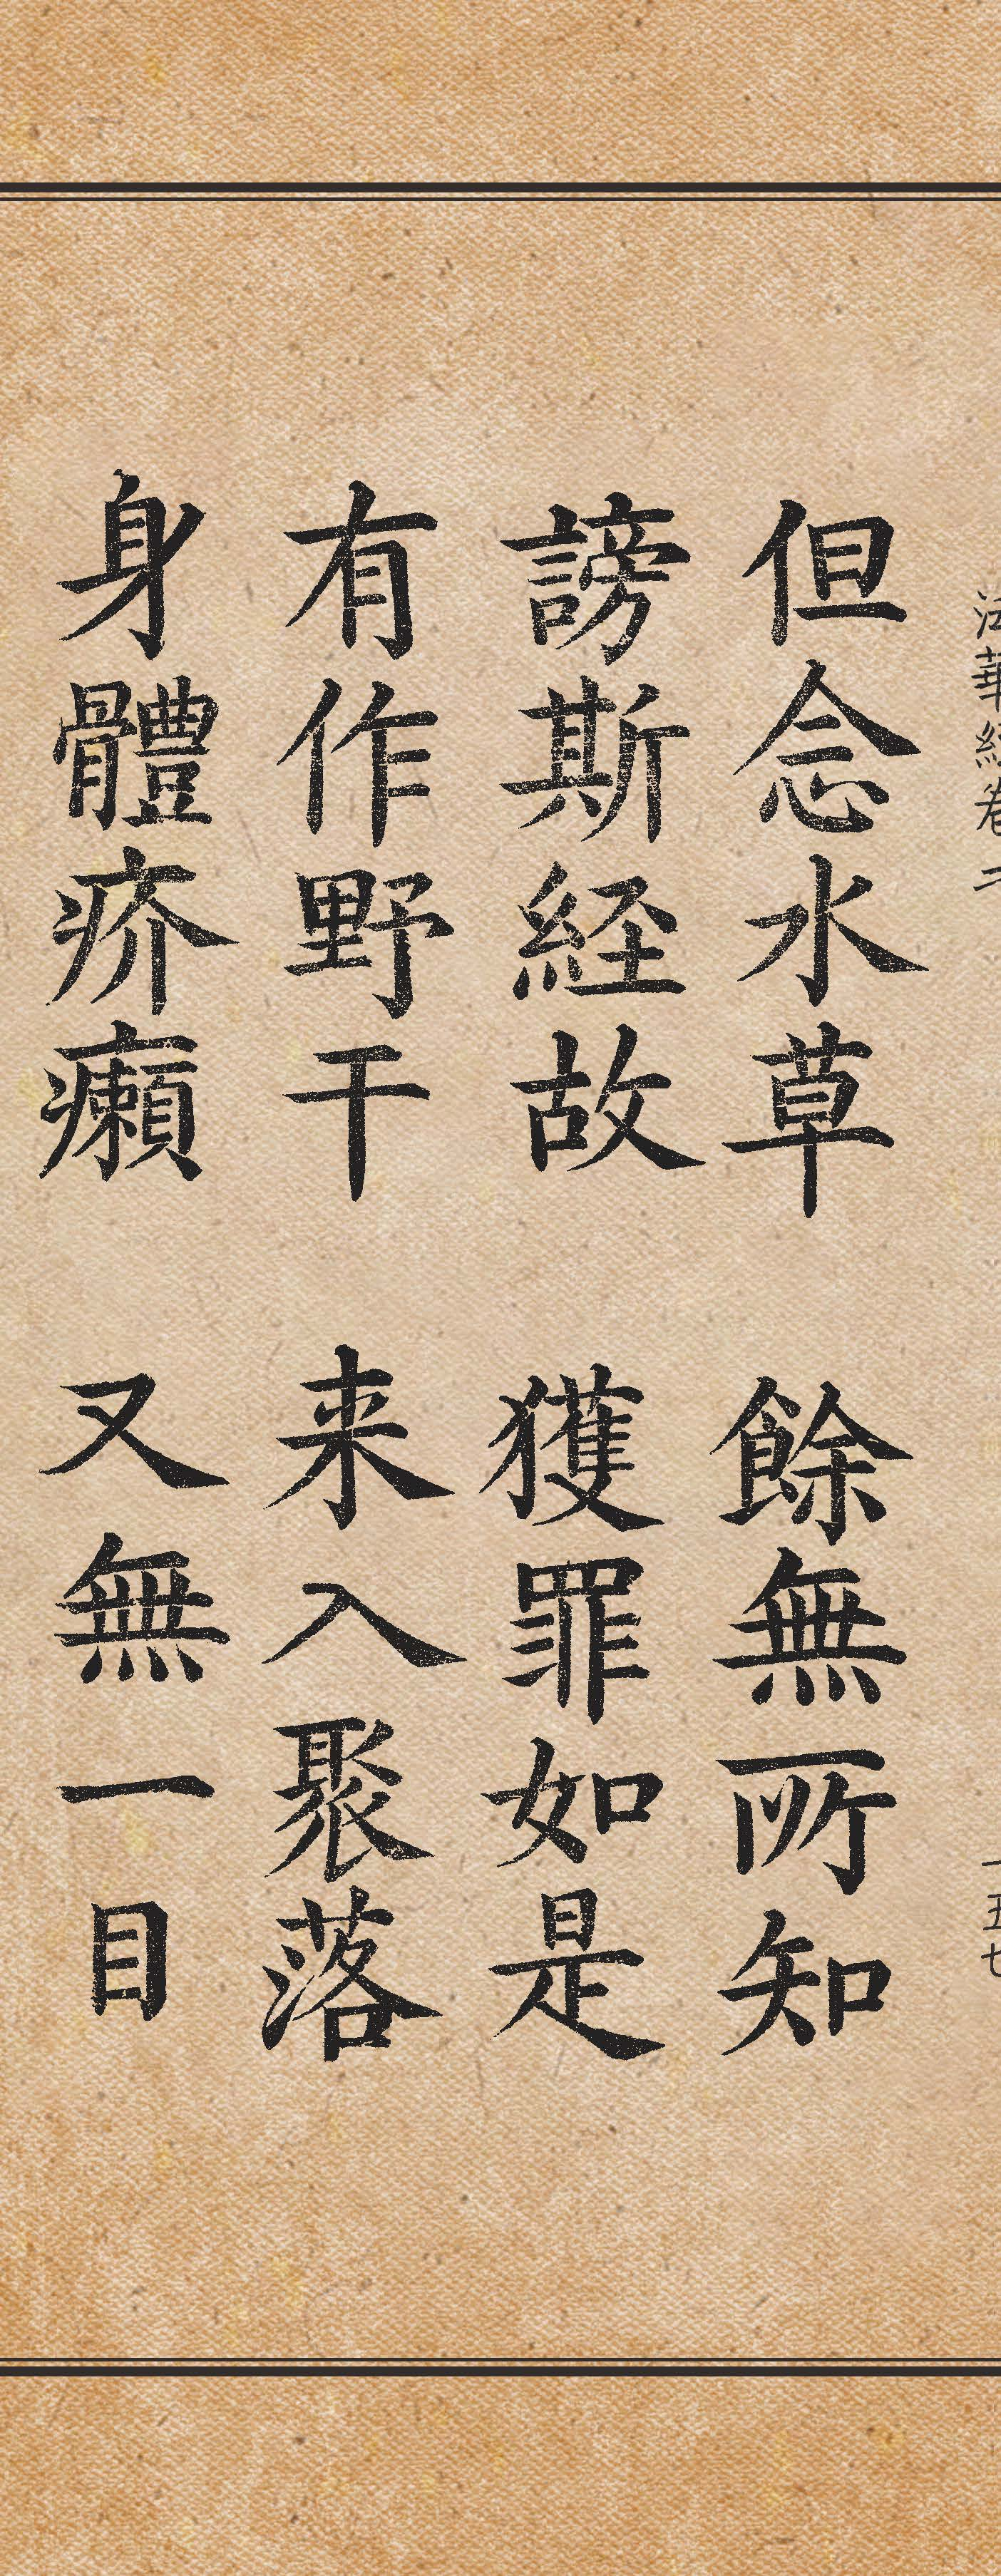 法華経巻二
一五七
但念水草 餘無所知
謗斯経故 獲罪如是
有作野干 来入聚落
身體疥癩 又無一目